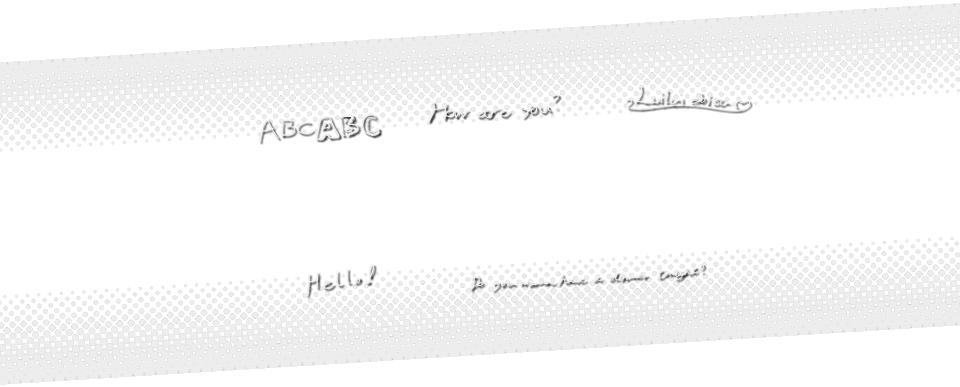 ABCABC
How are you?
Hello!
Do you wanna have a dinner tonight?